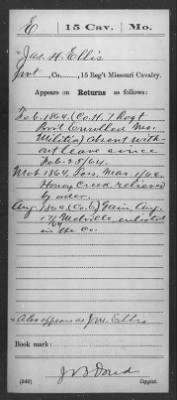 E | 15 Cav. | Mo.
Jas. H. Ellis
Pvt, Co. , 15 Reg't Missouri Cavalry.
Appears on Returns as follows:
Feb. 1864, (Co. H. 7 Regt
Prov. Enrolled Mo.
Militia) Absent with-
out leave since
Feb. 25/64.
Mch. 1864, Loss, Mar. 1/64
Honey Creek, relieved
by order.
Aug. 1864, (Co. E) Gain, Aug.
Melville, enlisted
in the Co.
Also appears as J. M. Ellis
Book mark:
(546)
Copyist.